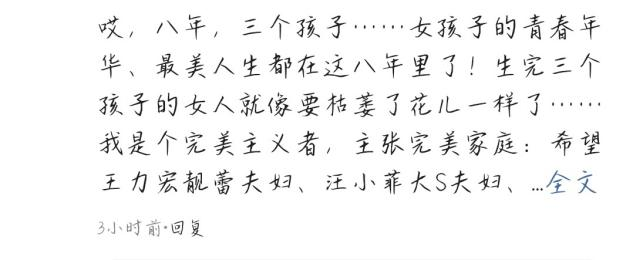 哎，八年，三个孩子……女孩子的青春年
华、最美人生都在这八年里了！生完三个
孩子的女人就像要枯萎了花儿一样了……
我是个完美主义者，主张完美家庭：希望
王力宏靓蕾夫妇、汪小菲大S夫妇、...全文
3小时前·回复